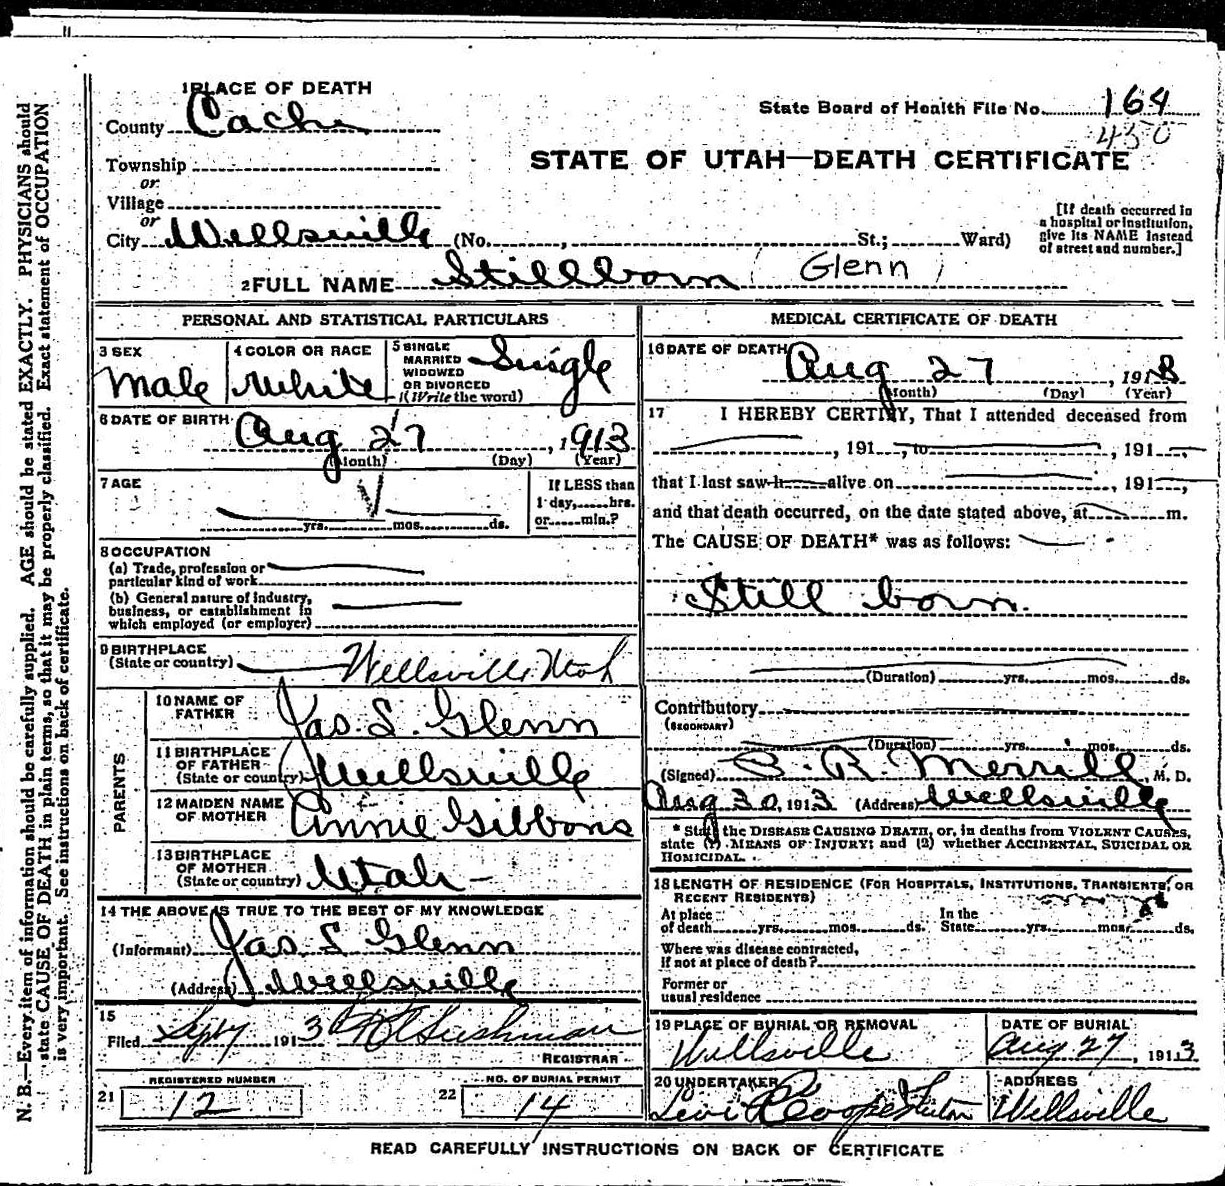 1 PLACE OF DEATH
County Cache
State Board of Health File No. 164
450
STATE OF UTAH—DEATH CERTIFICATE
Township
or
Village
or
City Wellsville (No. , St.; Ward)
[If death occurred in
a hospital or institution,
give its NAME instead
of street and number.]
2 FULL NAME Stillborn (Glenn)
PERSONAL AND STATISTICAL PARTICULARS
3 SEX
Male
4 COLOR OR RACE
White
5 SINGLE
MARRIED
WIDOWED
OR DIVORCED
(Write the word)
Single
6 DATE OF BIRTH
Aug 27, 1913
(Month) (Day) (Year)
7 AGE
yrs. mos. ds.
If LESS than
1 day, hrs.
or min.?
8 OCCUPATION
(a) Trade, profession or
particular kind of work
(b) General nature of industry,
business, or establishment in
which employed (or employer)
9 BIRTHPLACE
(State or country) Wellsville Utah
PARENTS
10 NAME OF
FATHER
Jas. S. Glenn
11 BIRTHPLACE
OF FATHER
(State or country)
Wellsville
12 MAIDEN NAME
OF MOTHER
Annie Gibbons
13 BIRTHPLACE
OF MOTHER
(State or country) Utah
14 THE ABOVE IS TRUE TO THE BEST OF MY KNOWLEDGE
(Informant) Jas S Glenn
(Address) Wellsville
15
Filed Sept 1913
REGISTRAR
REGISTERED NUMBER
21 12
NO. OF BURIAL PERMIT
22 14
MEDICAL CERTIFICATE OF DEATH
16 DATE OF DEATH
Aug 27, 1913
(Month) (Day) (Year)
17 I HEREBY CERTIFY, That I attended deceased from
, 191 , to , 191 ,
that I last saw h alive on , 191 ,
and that death occurred, on the date stated above, at m.
The CAUSE OF DEATH* was as follows:
Still born.
(Duration) yrs. mos. ds.
Contributory
(SECONDARY)
(Duration) yrs. mos. ds.
(Signed) B. R. Merrill, M. D.
Aug 30, 1913 (Address) Wellsville
* State the DISEASE CAUSING DEATH, or, in deaths from VIOLENT CAUSES,
state (1) MEANS OF INJURY; and (2) whether ACCIDENTAL, SUICIDAL OR
HOMICIDAL.
18 LENGTH OF RESIDENCE (FOR HOSPITALS, INSTITUTIONS, TRANSIENTS, OR
RECENT RESIDENTS)
At place
of death yrs. mos. ds.
In the
State yrs. mos. ds.
Where was disease contracted,
if not at place of death?
Former or
usual residence
19 PLACE OF BURIAL OR REMOVAL
Wellsville
DATE OF BURIAL
Aug 27, 1913
20 UNDERTAKER
Levi R Cooper
ADDRESS
Wellsville
READ CAREFULLY INSTRUCTIONS ON BACK OF CERTIFICATE
N. B.—Every item of information should be carefully supplied. AGE should be stated EXACTLY. PHYSICIANS should
state CAUSE OF DEATH in plain terms, so that it may be properly classified. Exact statement of OCCUPATION
is very important. See instructions on back of certificate.